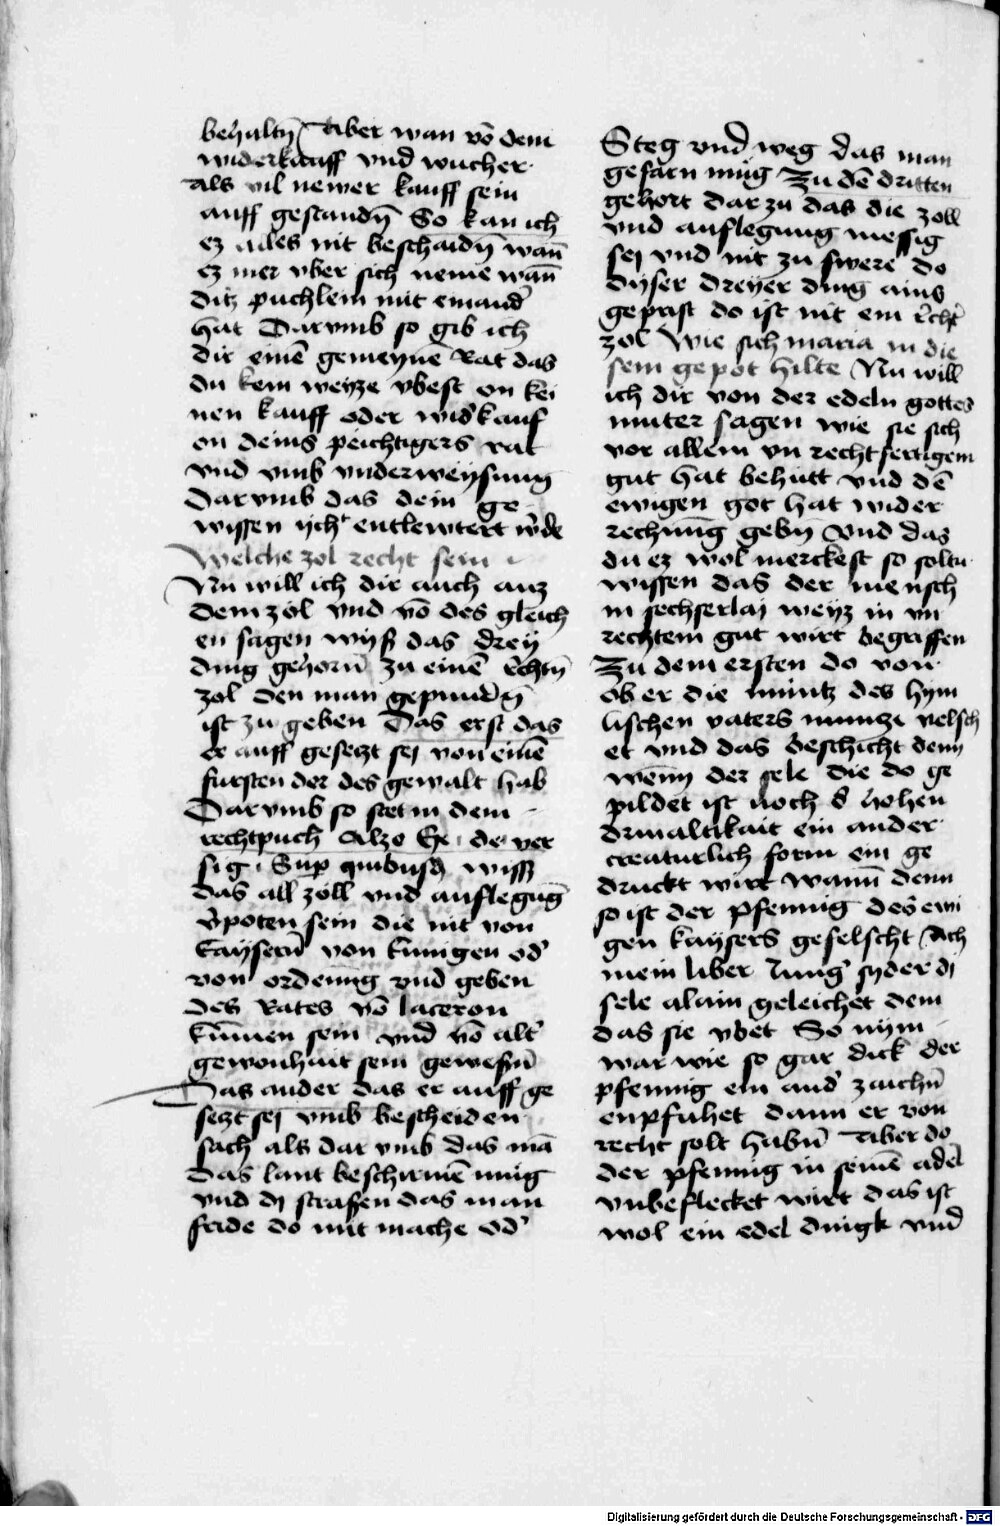 behaltn̄ Aber wan vō dem
widerkauff vnd wucher
Als vil newer kauff sein
auff gestandn̄ So kan ich
ez alles nit beschaidn̄ wan̄
ez mer vber sich neme wan̄
ditz puchlein mit einand͛
hat Darvmb so gib ich
dir einē gemeynē Rat das
du kein weyze vbest on kei
nen kauff oder wid͛kauf
on deins peichtigers rat
vnd vmb vnderweysung
Darvmb das dein ge
wissen ycht entlewtert w͛de
Welche zol recht sein
Nu will ich dir auch auz
dem zol vnd vō des gleich
en sagen wyß das drey
ding gehorn̄ zu einē r͛chtn̄
zol den man gepund͛n̄
ist zu geben Das erst das
er auff gesetzt sej von einē
fursten der des gewalt hab
Darvmb so stet in dem
rechtpuch Alzo Ex de ver
sig Sup quibusdā wiß
das all zoll vnd auflegūg
v͛poten sein die nit von
Kaysern̄ von kunigen od͛
von ordenūg vnd geben
des Rates vō laceron
kumen sein vnd vō alt͛
gewonhait sein gewesn̄
Das ander das er auff ge
setzt sej vmb bescheiden
sach als dar vmb das mā
das lant beschirmē mug
vnd dj strassen das man
fride do mit mache od͛
Steg vnd weg das man
gefarn mug Zu dē dritten
gehort dar zu das die zoll
vnd auflegung messig
sej vnd nit zu swere do
dyser dreyer ding ains
geprist do ist nit ein r͛cht͛
zol Wie sich maria in die
sem gepot hilte Nu will
ich dir von der edeln gottes
muter sagen wie sie sich
vor allem vn rechtfertigem
gut hat behutt vnd dē
ewigen got hat wider
rechnūg gebn̄ Vnd das
du ez wol merckest so soltu
wissen das der mensch
in sechserlaj weyz in vn
rechtem gut wirt begriffen
Zu dem ersten do von
ob er die müntz des hym
lischen vaters muntze velsch
et vnd das beschicht denn
wenn der sele die do ge
pildet ist noch d͛ hohen
driualtikait ein ander
creaturlich form ein ge
druckt wirt wann denn
so ist der pfennig des ewi
gen kaysers gefelscht Ach
mein liber Jung͛ syder dj
sele alain geleichet dem
das sie vbet So nym
war wie so gar dick der
pfennig ein and͛ zaichn̄
enpfahet dann er von
recht solt habn̄ Aber do
der pfennig in seinē adel
vnbeflecket wirt das ist
wol ein edel dingk vnd
Digitalisierung gefördert durch die Deutsche Forschungsgemeinschaft - DFG